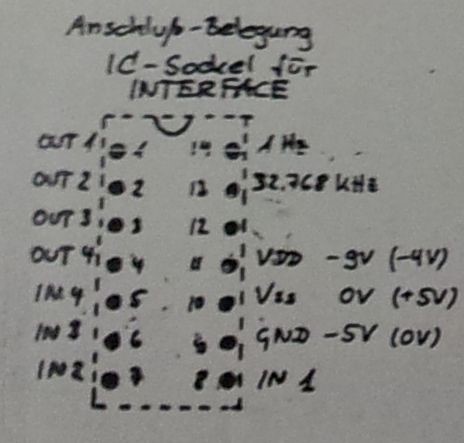 Anschluß-Belegung
IC-Sockel für
INTERFACE
OUT 1 1 14 1 Hz
OUT 2 2 13 32.768 kHz
OUT 3 3 12
OUT 4 4 11 VDD -9V (-4V)
IN 4 5 10 Vss 0V (+5V)
IN 3 6 9 GND -5V (0V)
IN 2 7 8 IN 1